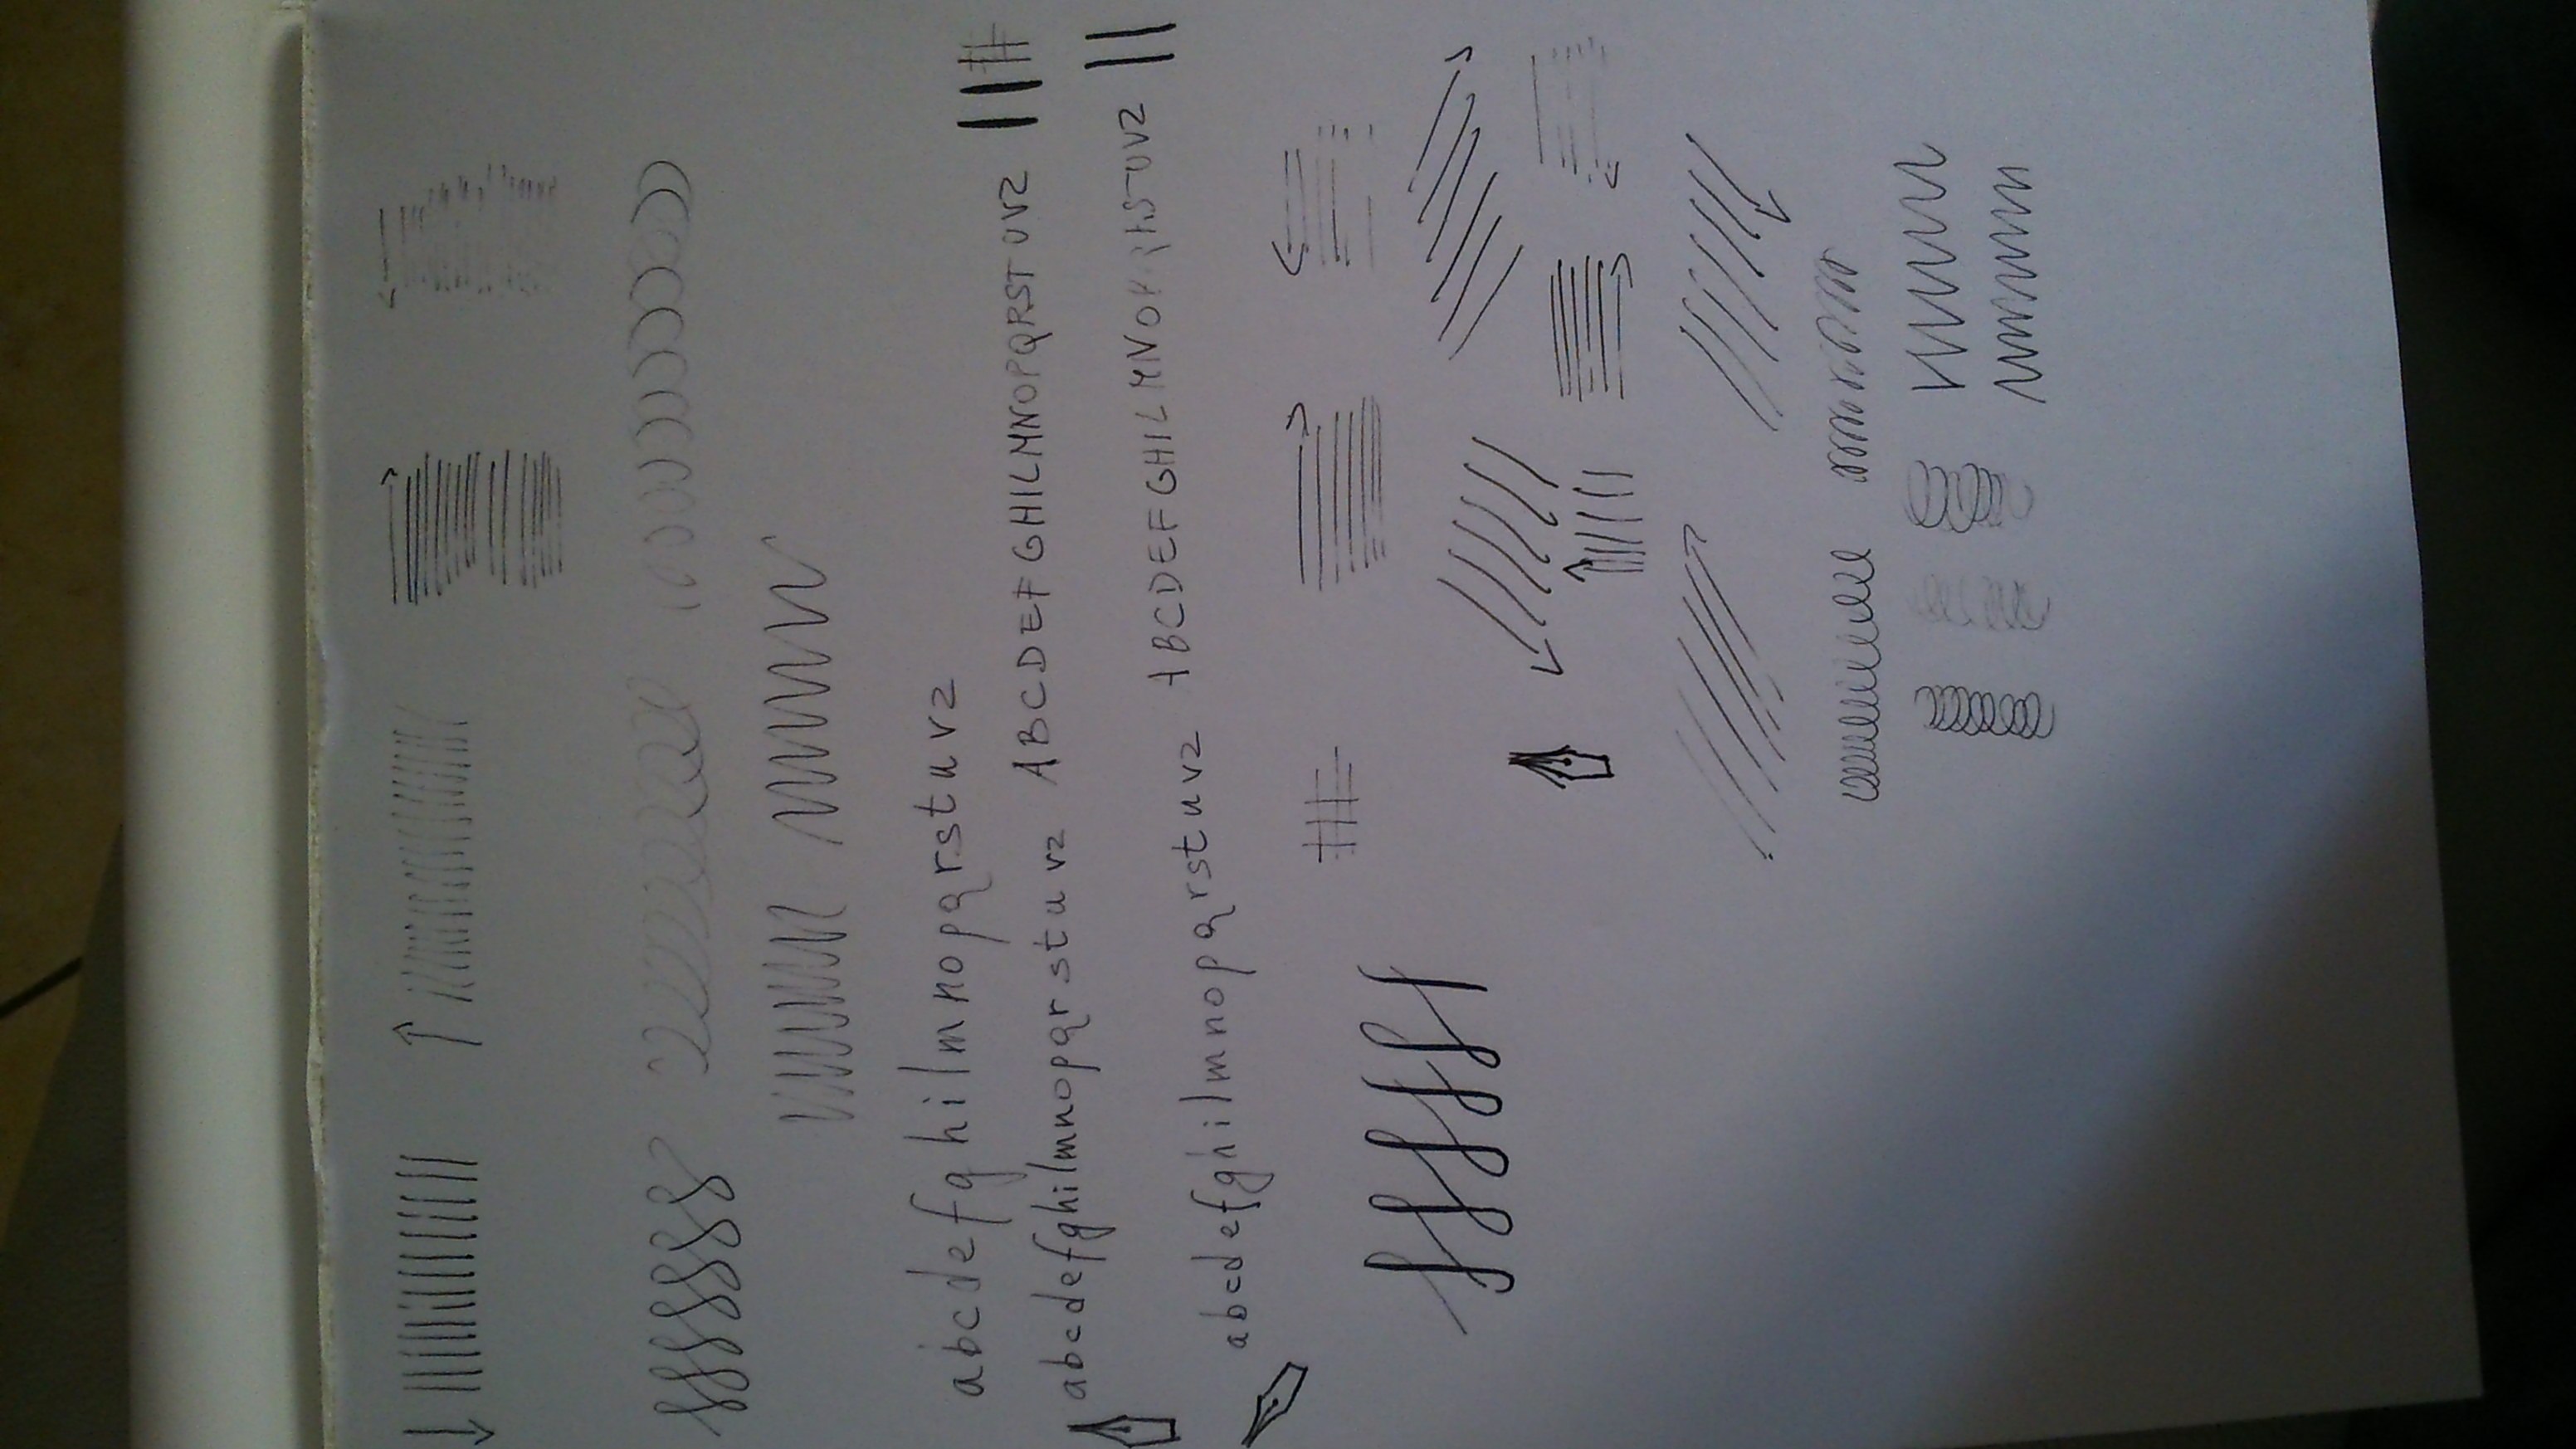 abcdefghilmnopqrstuvz
abcdefghilmnopqrstuvz ABCDEFGHILMNOPQRSTUVZ
abcdefghilmnopqrstuvz ABCDEFGHILMNOPQRSTUVZ